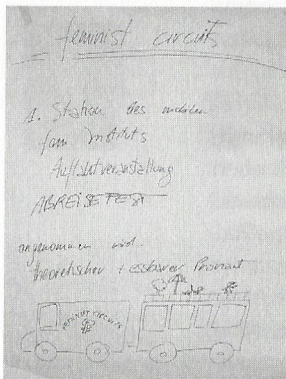 feminist circuits
1. Station des mobilen
fem Instituts
Auftaktveranstaltung
ABREISEFEST
angenommen wird
theoretischer + essbarer Proviant
FEMINIST CIRCUITS